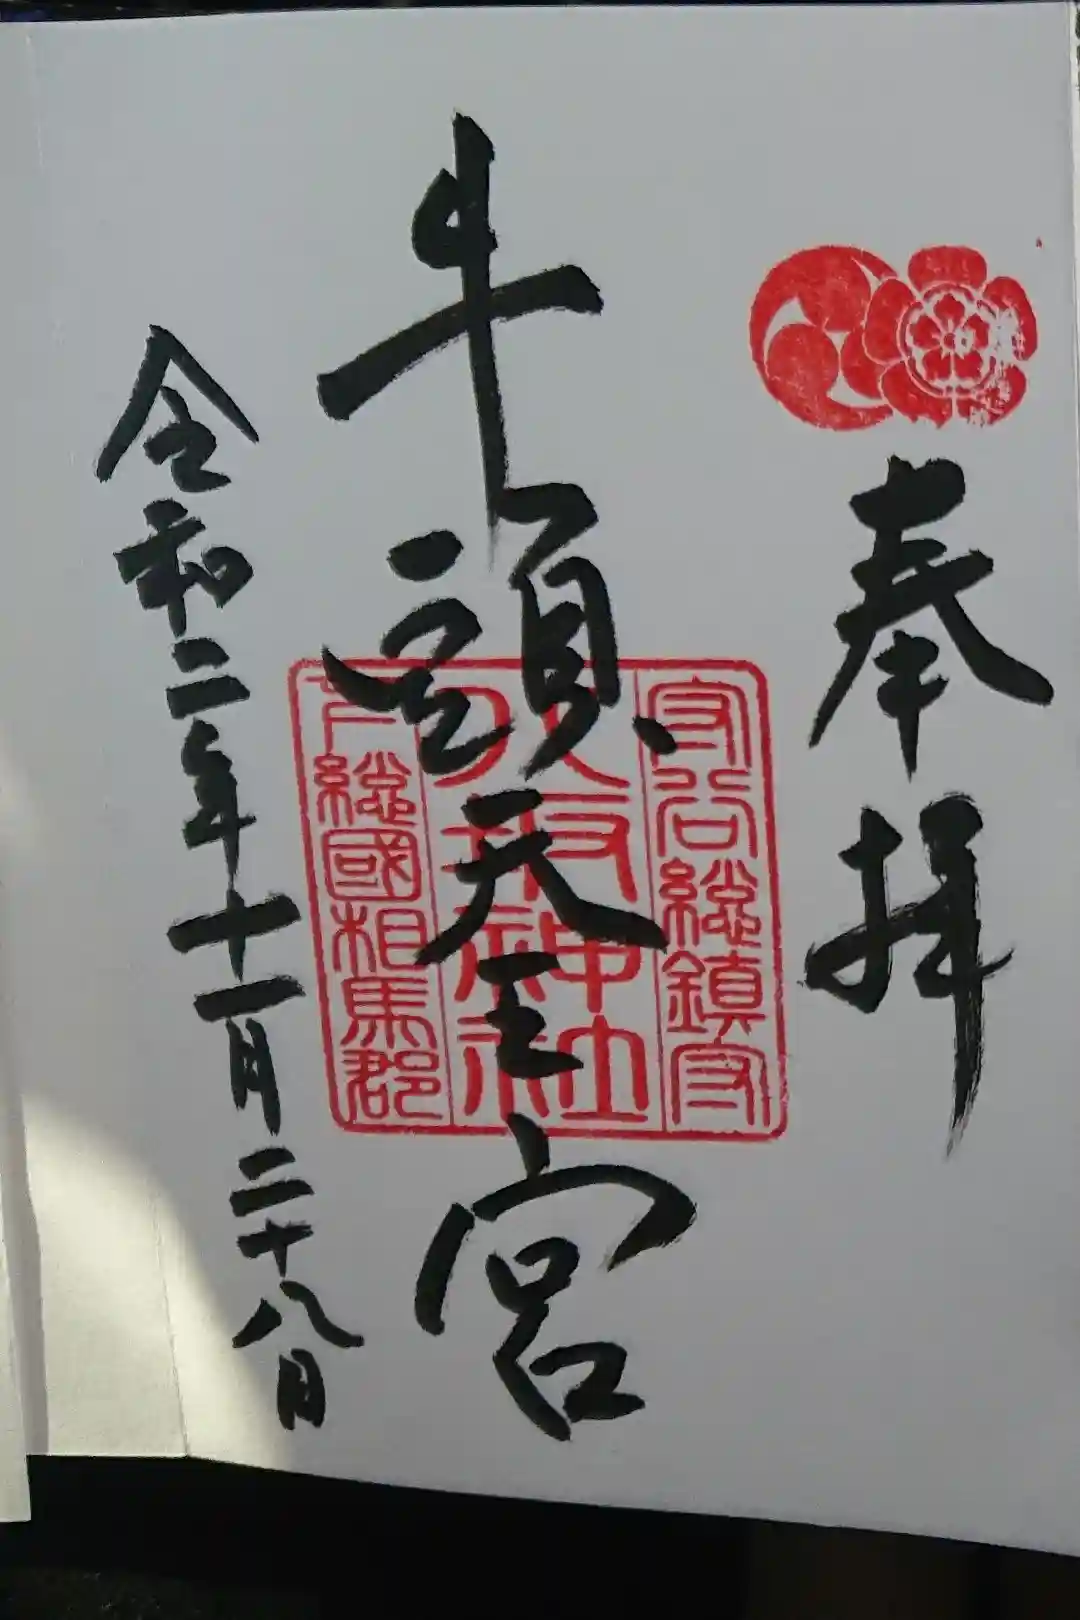 奉拝
牛頭天王宮
令和二年十一月二十八日
守谷総鎮守
八坂神社
下総國相馬郡